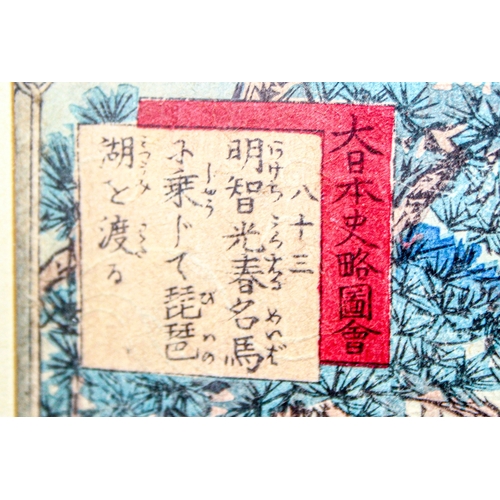 大日本史略圖會
八十三
明智光春名馬
に乗じて琵琶
湖を渡る